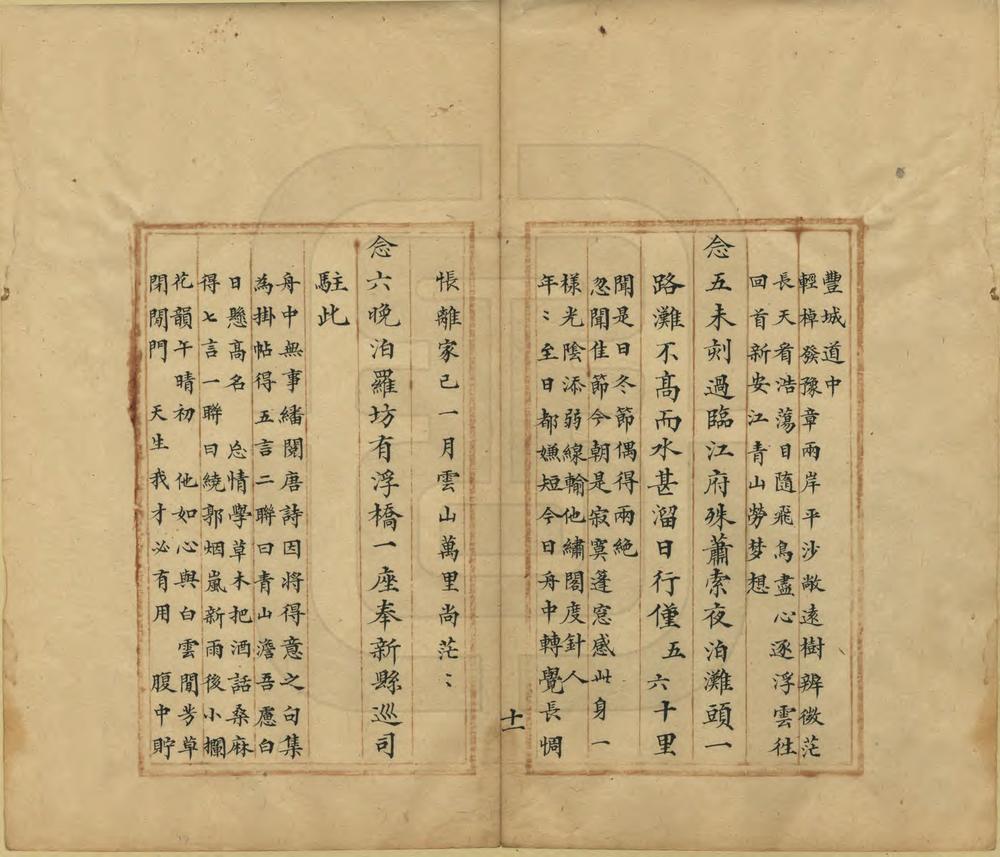 豐城道中
輕棹發豫章兩岸平沙敞遠樹辨微茫
長天看浩蕩目隨飛鳥盡心逐浮雲往
回首新安江青山勞梦想
念五未刻過臨江府殊蕭索夜泊灘頭一
路灘不高而水甚溜日行僅五六十里
聞是日冬節偶得兩絶
忽聞佳節今朝是寂寞蓬窓感此身一
樣光陰添弱線輸他繡閣度針人
年〻至日都嫌短今日舟中轉覺長惆
十一
悵離家已一月雲山萬里尚茫〻
念六晚泊羅坊有浮橋一座奉新縣巡司
駐此
舟中無事繙閱唐詩因將得意之句集
為掛帖得五言二聯曰青山澹吾慮白
日懸高名 忘情學草木把酒話桑麻
得七言一聯曰繞郭烟嵐新雨後小欄
花韻午晴初 他如心與白雲閒芳草
閉閒門 天生我才必有用 腹中貯